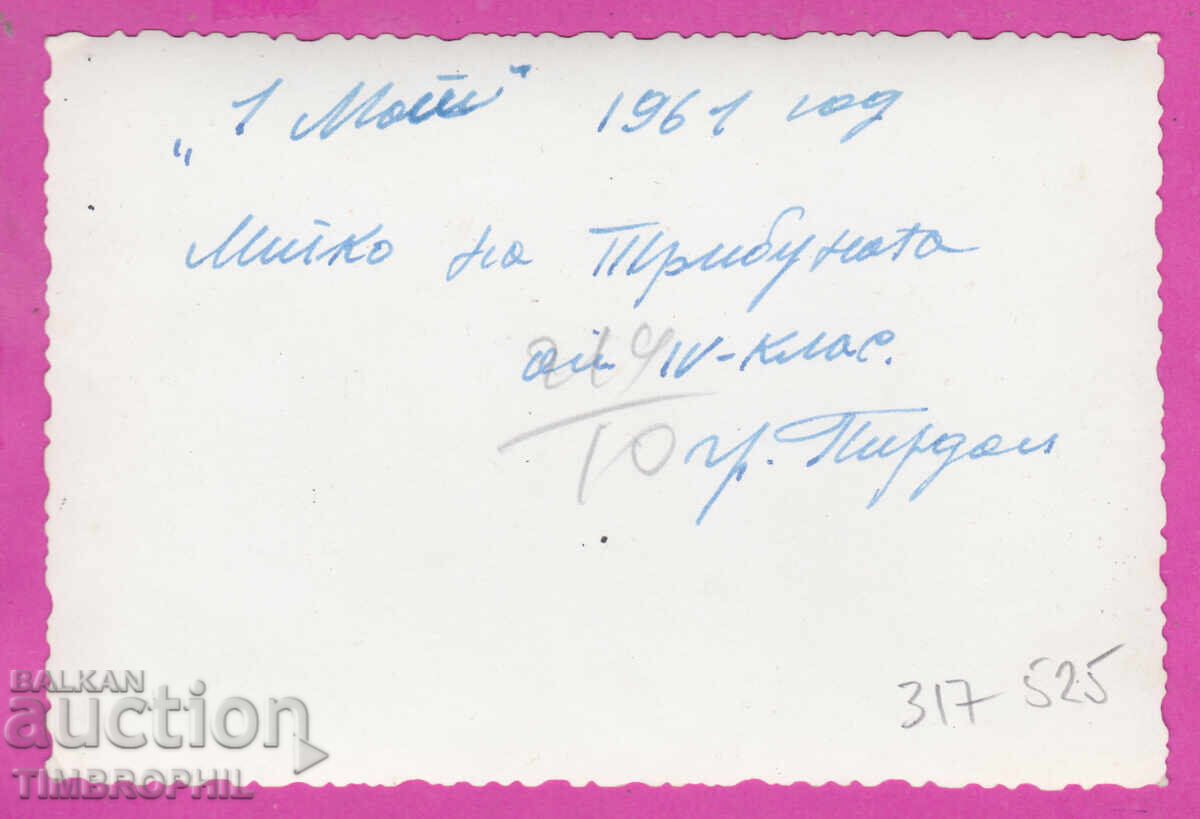 „1 Май" 1961 год
Митко на Трибуната
от IV-клас.
гр. Пирдоп
10
317-525
BALKAN
auction
TIMBROPHIL